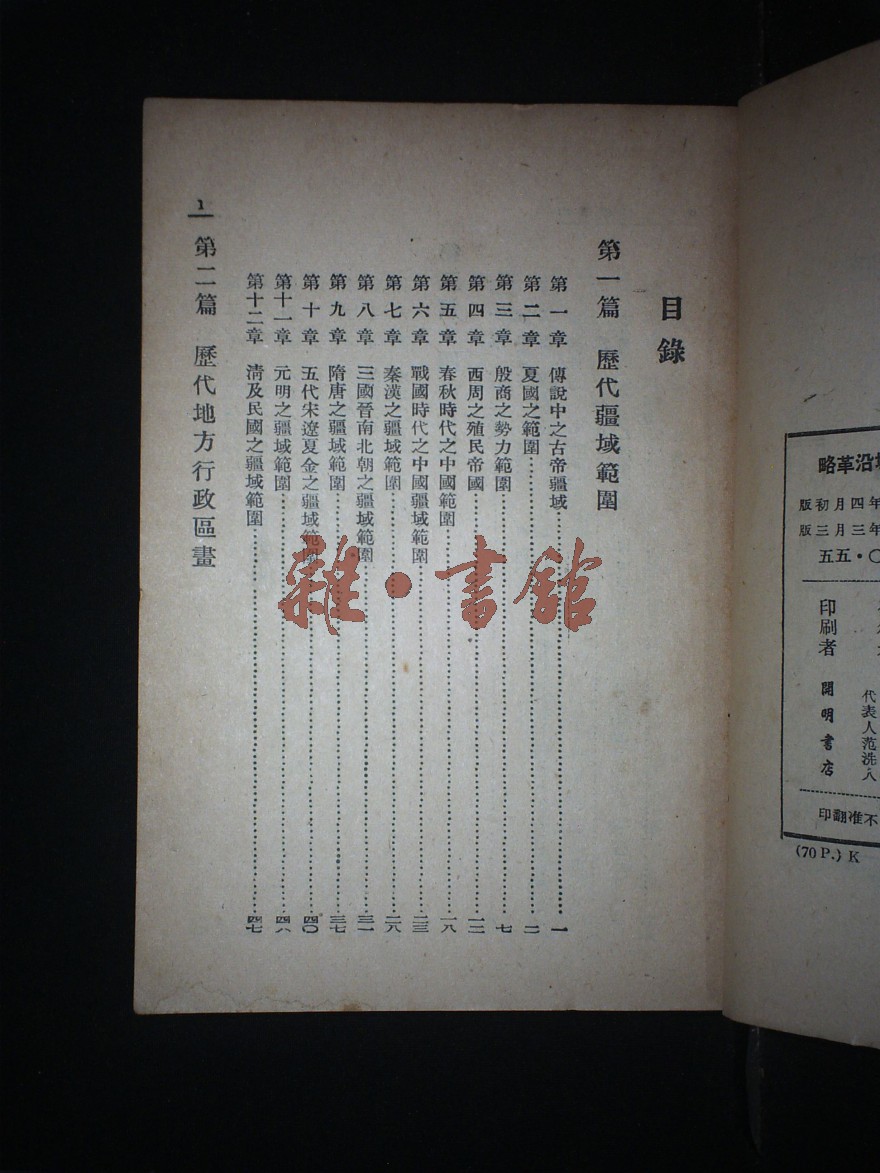 沿革略
年四月初版
年三月三版
〇·五五
代表人范洗人
印刷者 開明書店
不准翻印
(70 P.) K
目錄
第一篇 歷代疆域範圍
第一章 傳說中之古帝疆域……一
第二章 夏國之範圍……二
第三章 殷商之勢力範圍……七
第四章 西周之殖民帝國……一二
第五章 春秋時代之中國範圍……一八
第六章 戰國時代之中國疆域範圍……二三
第七章 秦漢之疆域範圍……二八
第八章 三國晉南北朝之疆域範圍……三一
第九章 隋唐之疆域範圍……三七
第十章 五代宋遼夏金之疆域範圍……四〇
第十一章 元明之疆域範圍……四六
第十二章 清及民國之疆域範圍……四七
第二篇 歷代地方行政區畫
1
雜·書館